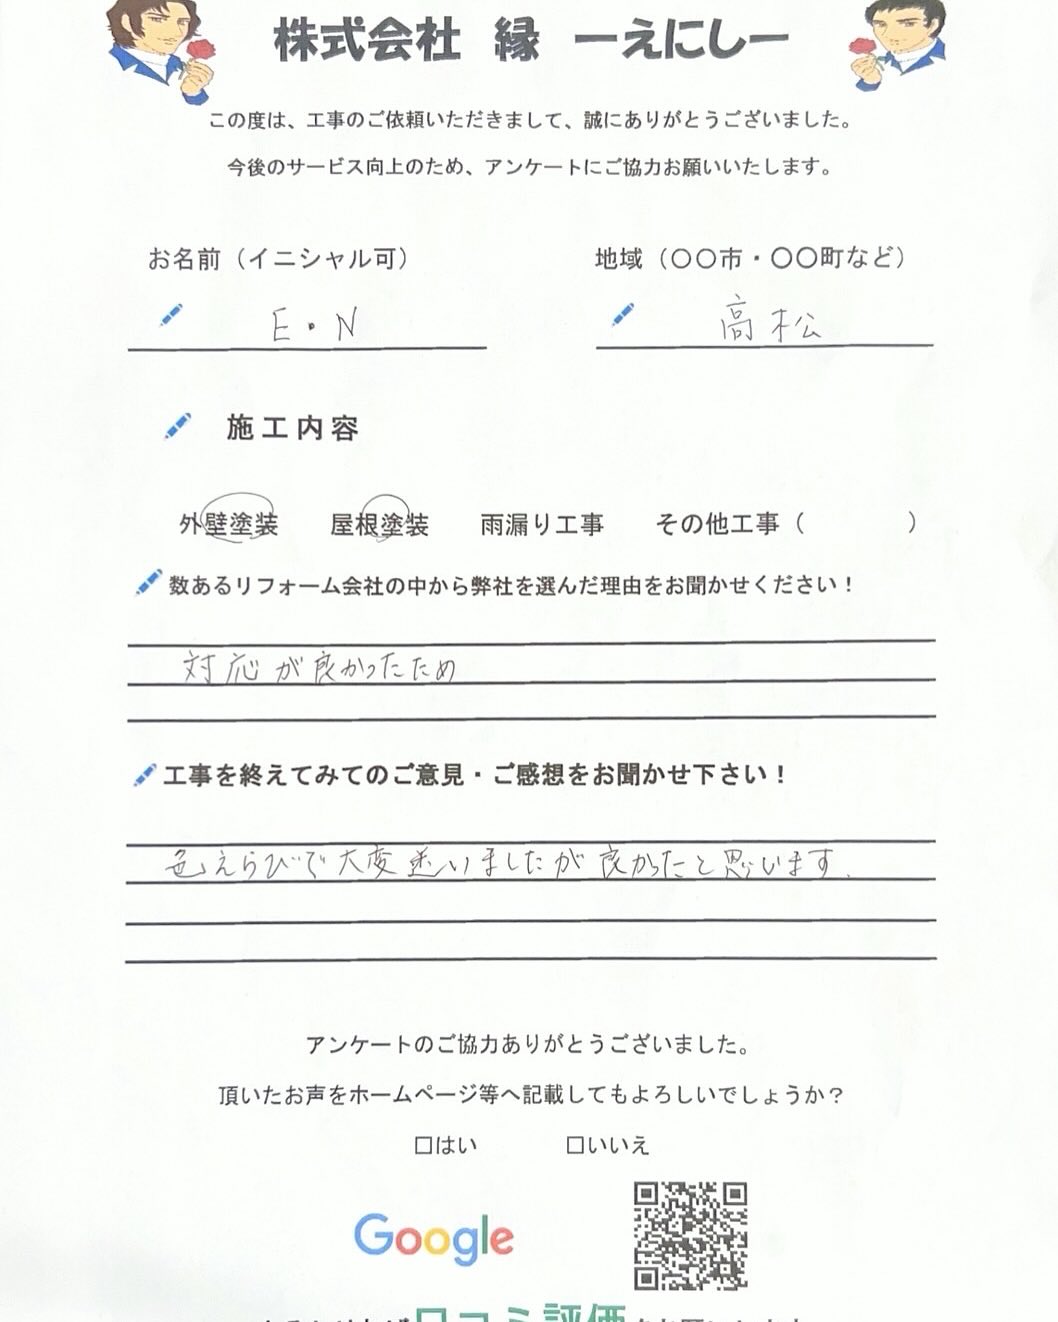 株式会社 縁 ーえにしー
この度は、工事のご依頼いただきまして、誠にありがとうございました。
今後のサービス向上のため、アンケートにご協力お願いいたします。
お名前（イニシャル可） 地域（〇〇市・〇〇町など）
E・N 高松
施工内容
外壁塗装 屋根塗装 雨漏り工事 その他工事（ ）
数あるリフォーム会社の中から弊社を選んだ理由をお聞かせください！
対応が良かったため
工事を終えてみてのご意見・ご感想をお聞かせ下さい！
色えらびで大変迷いましたが良かったと思います.
アンケートのご協力ありがとうございました。
頂いたお声をホームページ等へ記載してもよろしいでしょうか？
☐はい ☐いいえ
Google
口コミ評価